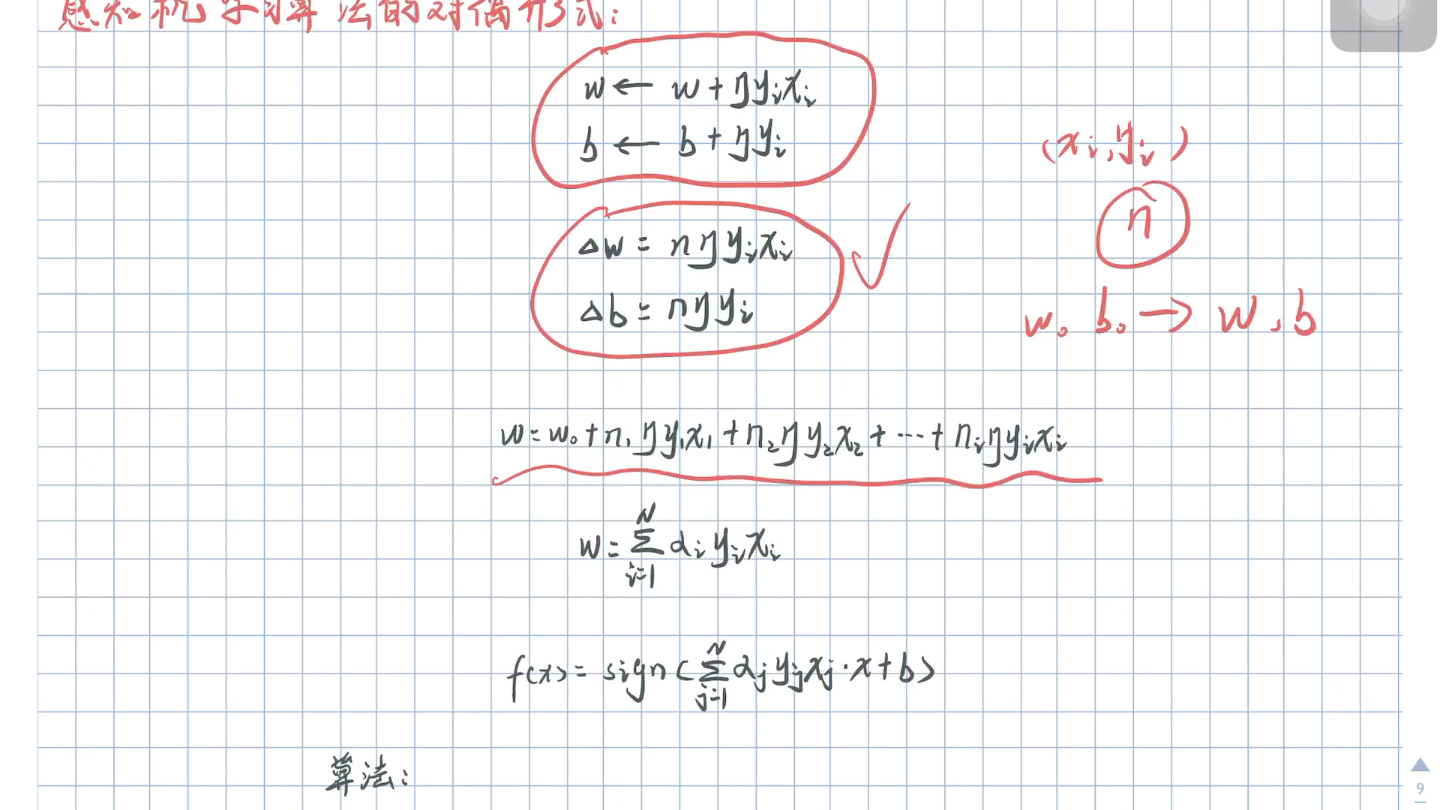 感知机学习算法的对偶形式:
w ← w + ηyᵢxᵢ
b ← b + ηyᵢ
(xᵢ, yᵢ)
n
Δw = nηyᵢxᵢ
Δb = nηyᵢ
w₀ b₀ → w, b
w = w₀ + n₁ηy₁x₁ + n₂ηy₂x₂ + ⋯ + nᵢηyᵢxᵢ
w = Σᵢ₌₁ᴺ αᵢyᵢxᵢ
f(x) = sign(Σⱼ₌₁ᴺ αⱼyⱼxⱼ·x + b)
算法:
9